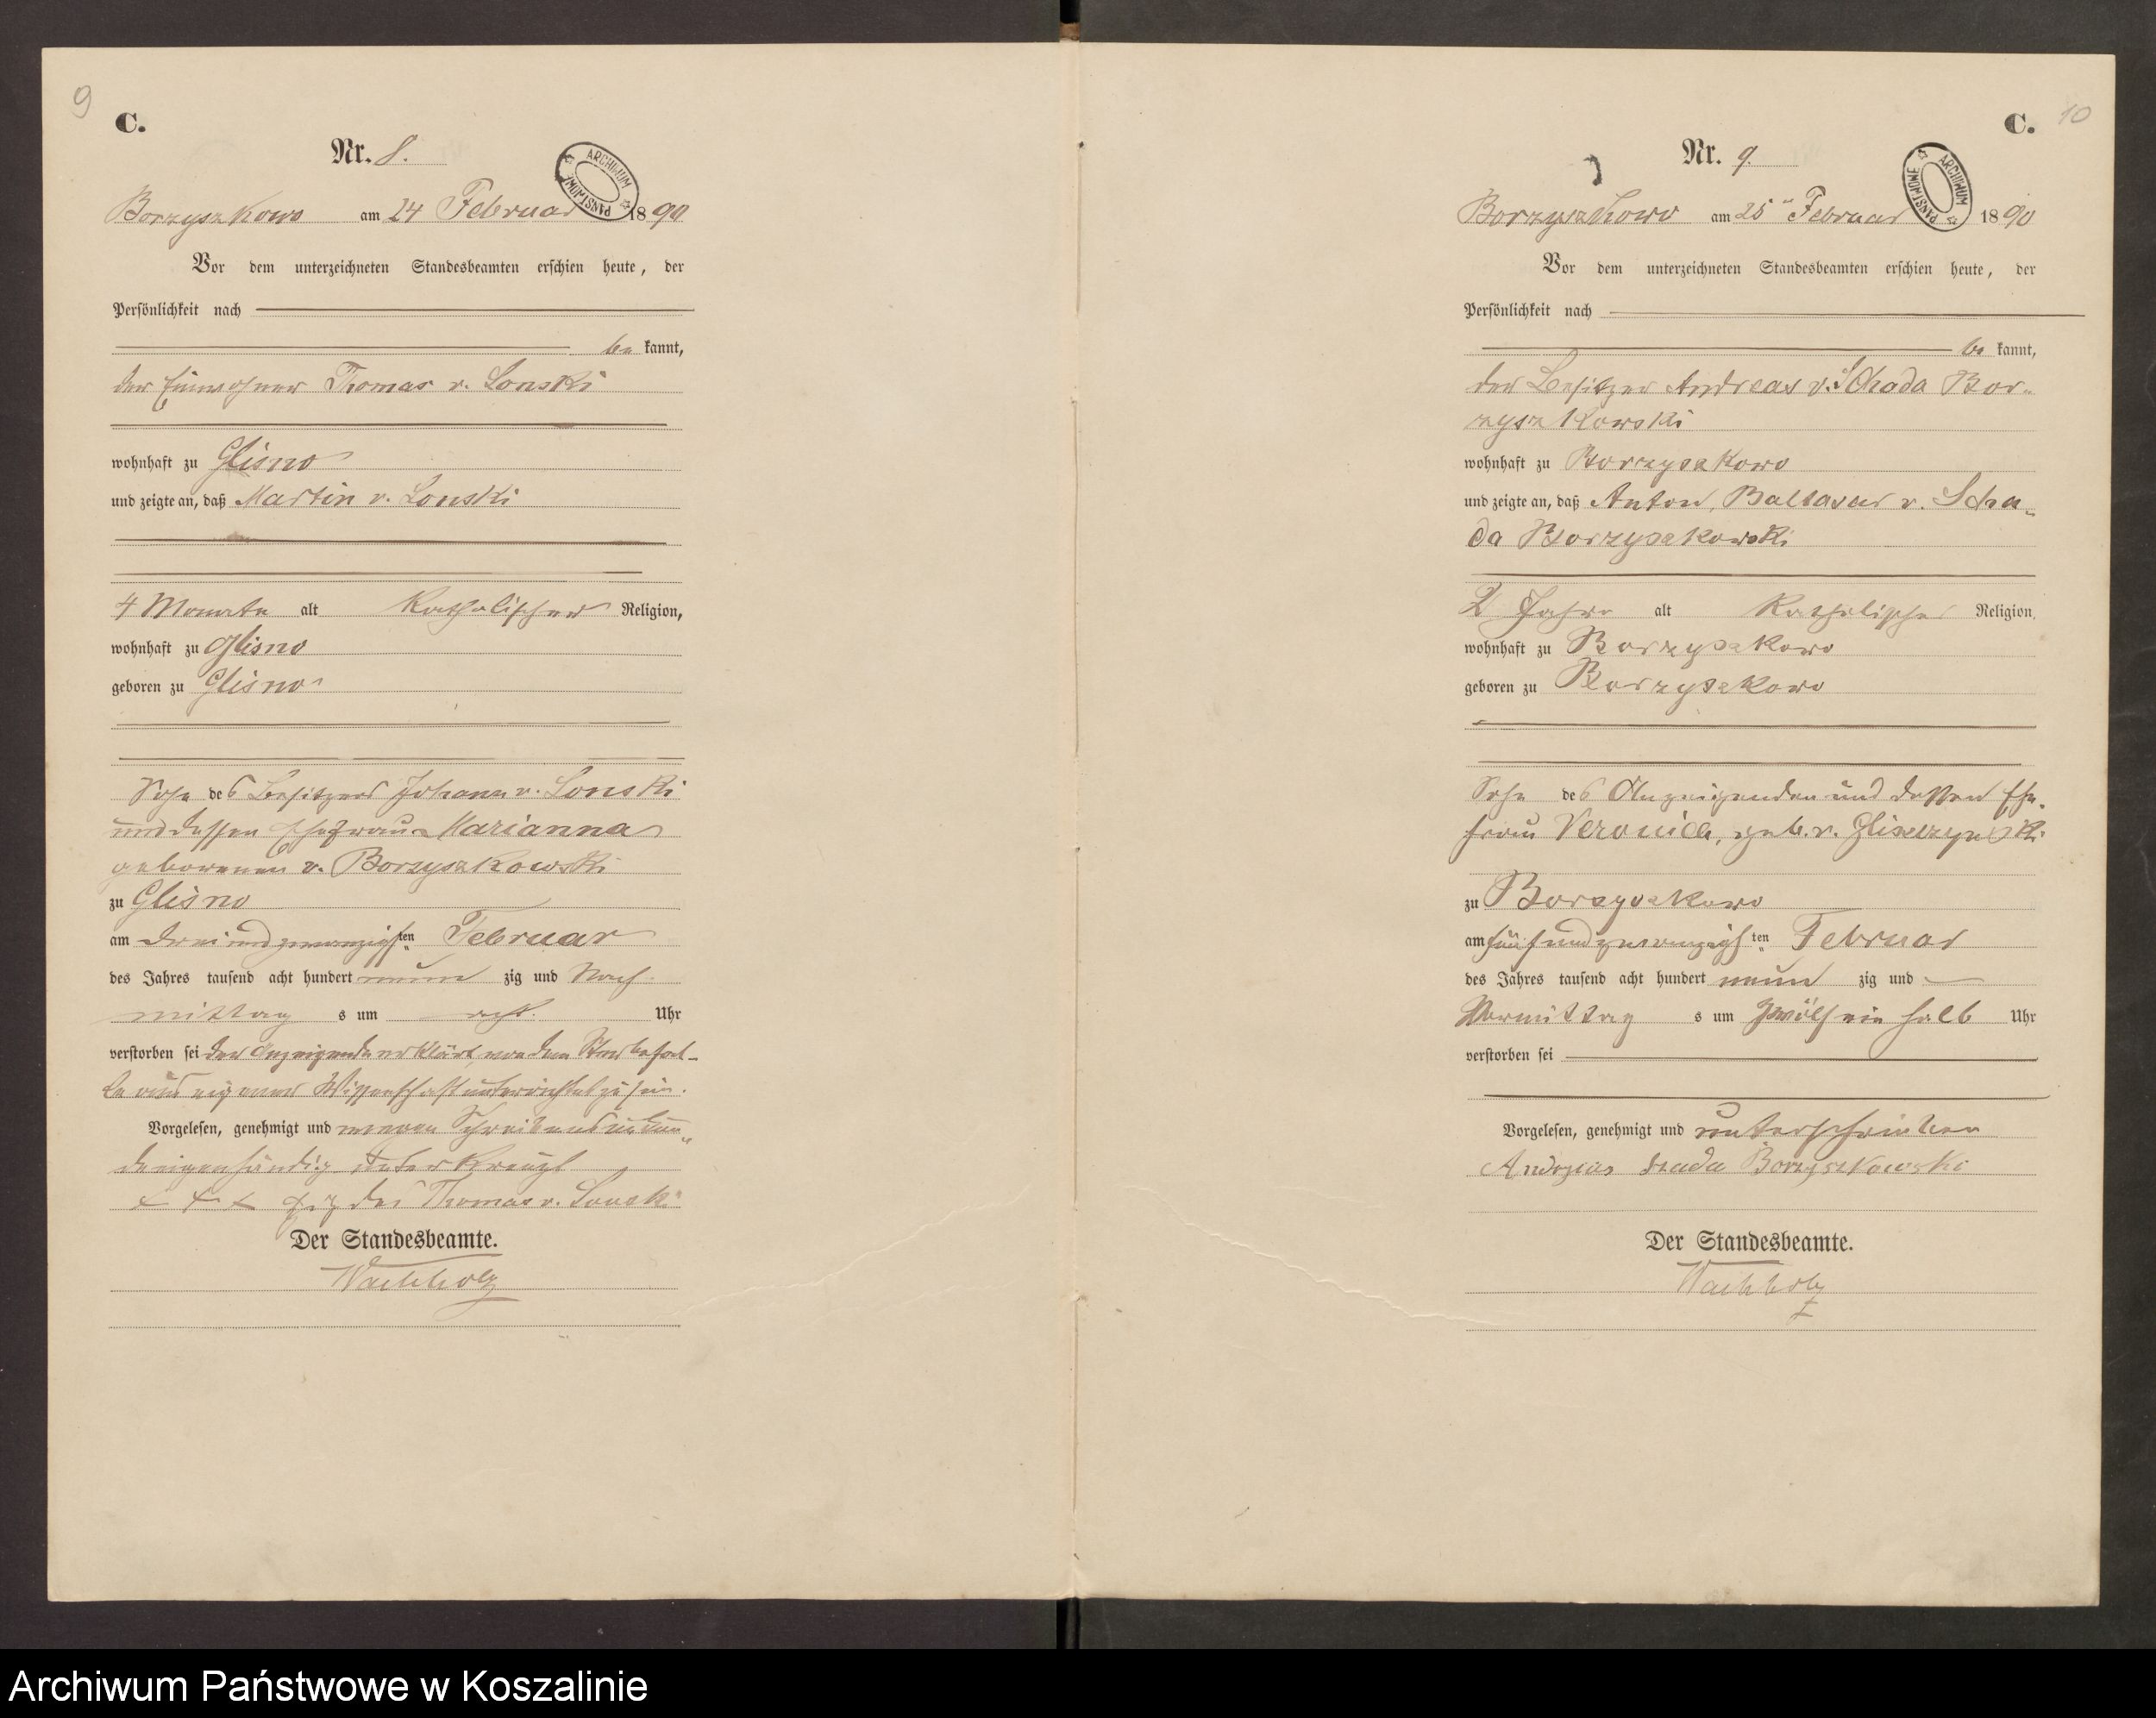 9
C.
Nr. 8.
ARCHIWUM PAŃSTWOWE
Borzyszkowo am 24 Februar 1890
Vor dem unterzeichneten Standesbeamten erschien heute, der
Persönlichkeit nach
be kannt,
der Einwohner Thomas v. Lonski
wohnhaft zu Glisno
und zeigte an, daß Martin v. Lonski
4 Monate alt Katholischer Religion,
wohnhaft zu Glisno
geboren zu Glisno
Sohn des Besitzers Johann v. Lonski
und dessen Ehefrau Marianna
geborenen v. Borzyszkowski
zu Glisno
am dreiundzwanzigsten Februar
des Jahres tausend acht hundert neun zig und Nach
mittag s um acht Uhr
verstorben sei der Anzeigende erklärt, von dem Sterbefal-
le aus eigener Wissenschaft unterrichtet zu sein.
Vorgelesen, genehmigt und wegen Schreibens
eigenhändig unterkreuzt
+ + + des Thomas v. Lonski
Der Standesbeamte.
Wachholz
10
C.
Nr. 9.
ARCHIWUM PAŃSTWOWE
Borzyszkowo am 25 Februar 1890
Vor dem unterzeichneten Standesbeamten erschien heute, der
Persönlichkeit nach
be kannt,
der Besitzer Andreas v. Schada Bor-
zyszkowski
wohnhaft zu Borzyszkowo
und zeigte an, daß Anton, Baltasar v. Scha-
da Borzyszkowski
2 Jahre alt Katholischer Religion,
wohnhaft zu Borzyszkowo
geboren zu Borzyszkowo
Sohn des Anzeigenden und dessen Ehe-
frau Veronica, geb. v. Gliszczynski
zu Borzyszkowo
am fünfundzwanzigsten Februar
des Jahres tausend acht hundert neun zig und
Vormittag s um zwölf ein halb Uhr
verstorben sei
Vorgelesen, genehmigt und unterschrieben
Andrzeas Szada Borzyszkowski
Der Standesbeamte.
Wachholz
Archiwum Państwowe w Koszalinie